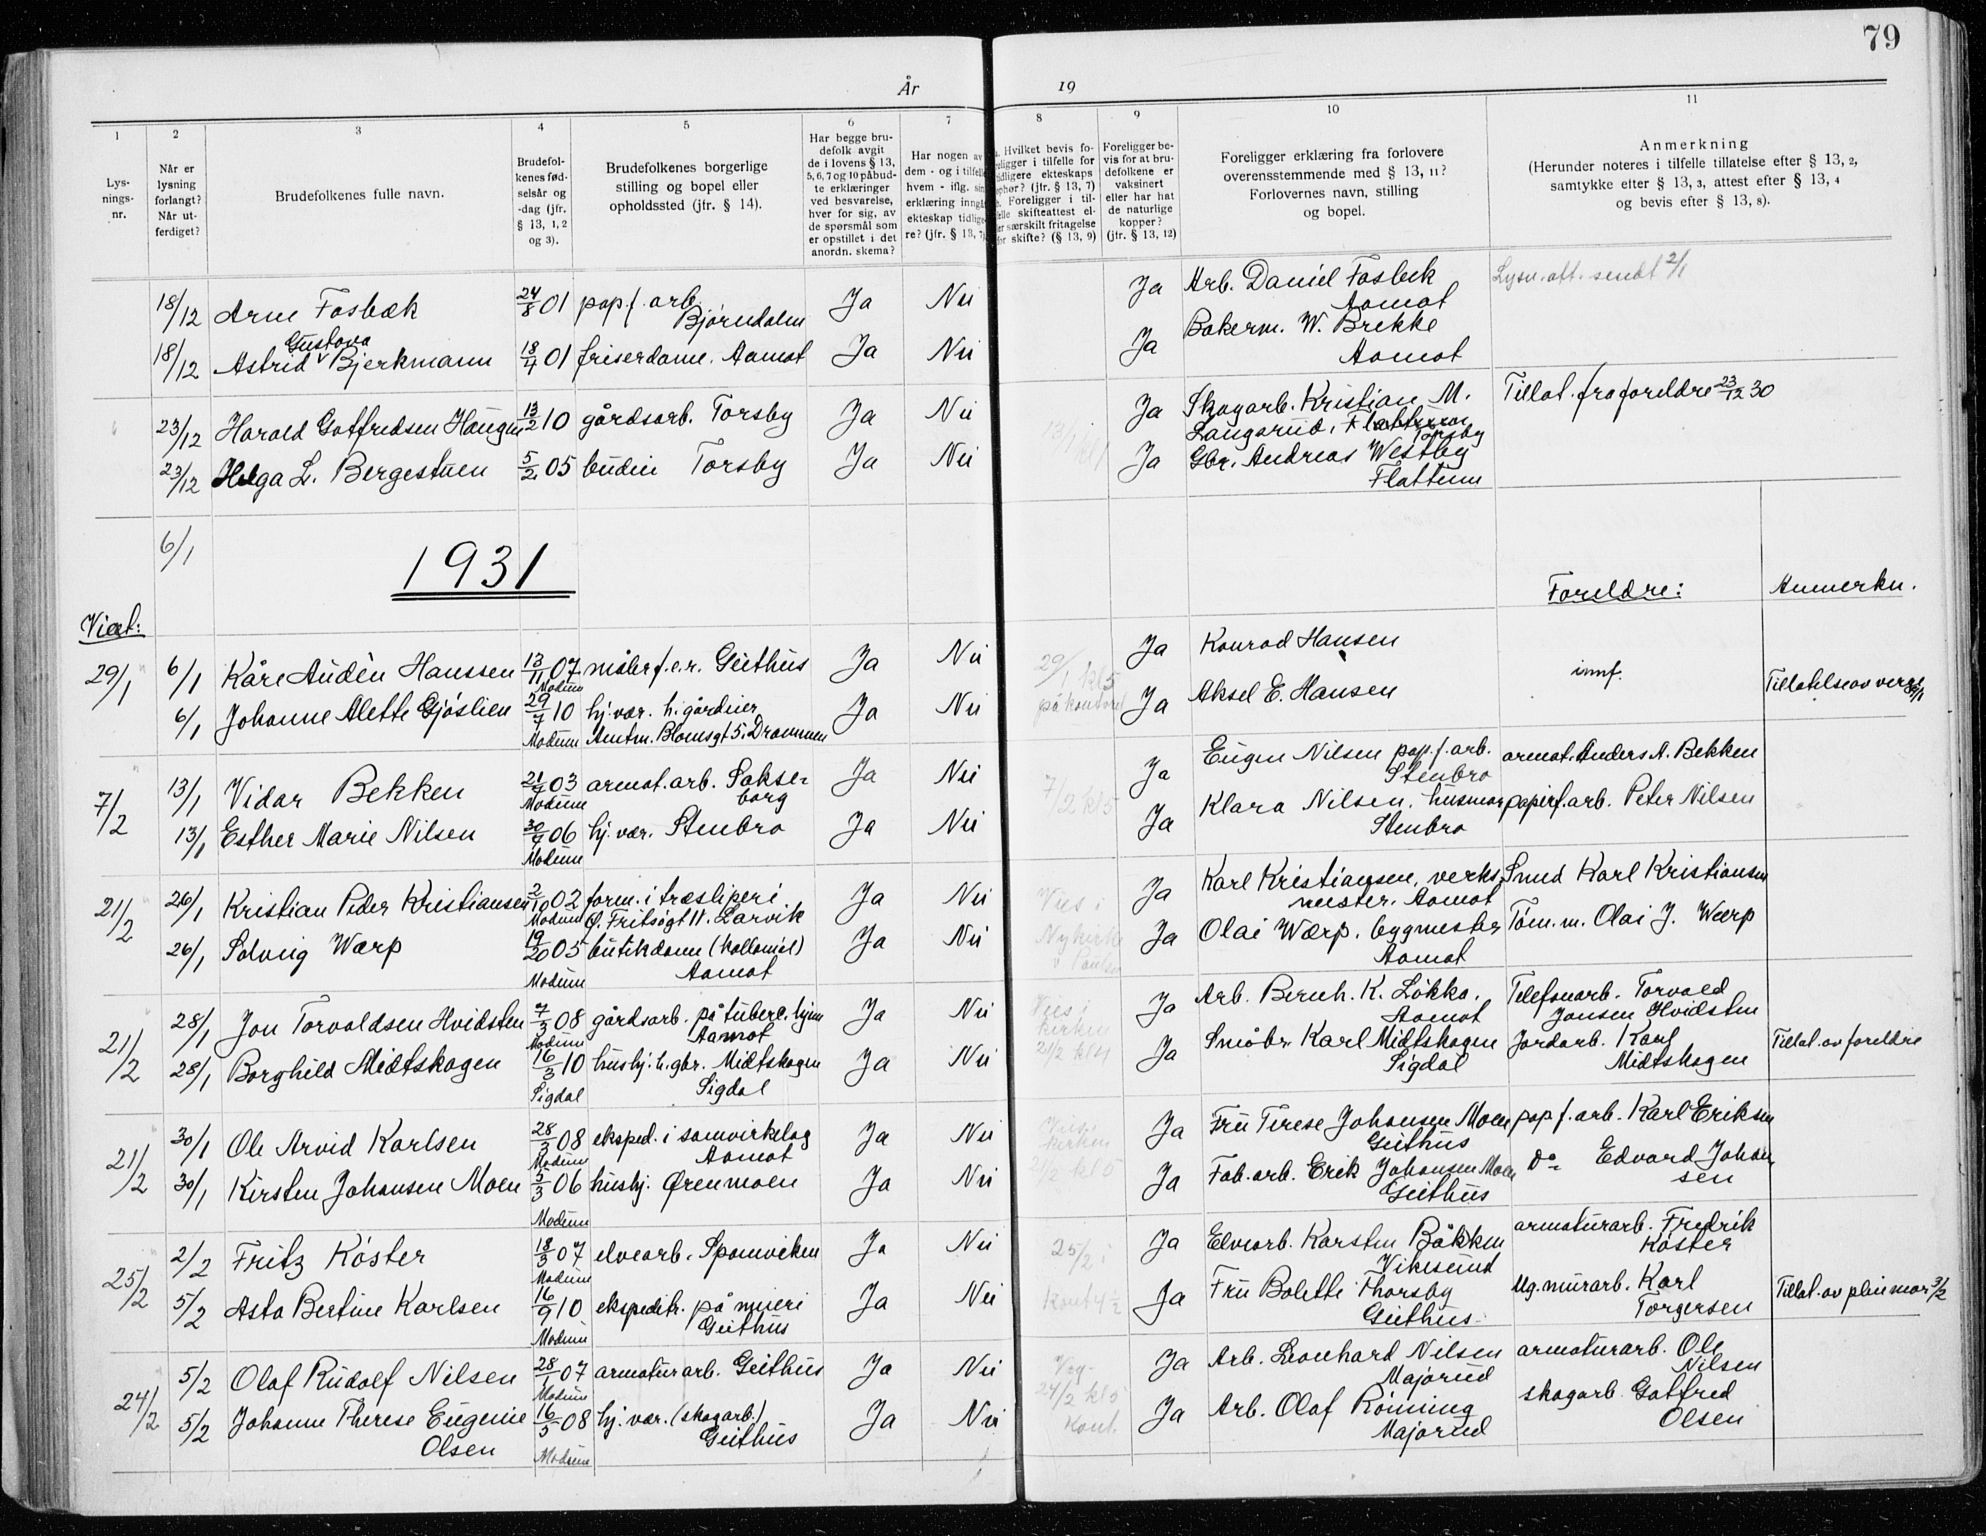 79
År
19
1
2
3
4
5
6
7
8
9
10
11
Lys-
nings-
nr.
Når er
lysning
forlangt?
Når ut-
ferdiget?
Brudefolkenes fulle navn.
Brudefol-
kenes fød-
selsår og
-dag (jfr.
§ 13, 1, 2
og 3).
Brudefolkenes borgerlige
stilling og bopel eller
opholdssted (jfr. § 14).
Har begge bru-
defolk avgit
de i lovens § 13,
5, 6, 7 og 10 påbud-
te erklæringer
ved besvarelse,
hver for sig, av
de spørsmål som
er opstillet i det
anordn. skema?
Har nogen av
dem - og i tilfelle
hvem - iflg. sin
erklæring inngå
ekteskap tidlige-
re? (jfr. § 13, 7)
Hvilket bevis fo-
religger i tilfelle for
tidligere ekteskaps
ophør? (jfr. § 13, 7)
Foreligger i til-
felle skifteattest el-
ler særskilt fritagelse
for skifte? (§ 13, 9)
Foreligger be-
vis for at bru-
defolkene er
vaksinert
eller har hat
de naturlige
kopper?
(jfr. § 13, 12)
Foreligger erklæring fra forlovere
overensstemmende med § 13, 11?
Forlovernes navn, stilling
og bopel.
Anmerkning
(Herunder noteres i tilfelle tillatelse efter § 13, 2,
samtykke efter § 13, 3, attest efter § 13, 4
og bevis efter § 13, 8).
18/12 Arne Fosbæk 24/8 01 pap.f. arb. Bjørndalen Ja Nei Ja Arb. Daniel Fosbek Aamot Lysn.att. sendt 2/1
18/12 Astrid Gustava Bjerkmann 18/4 01 friserdame. Aamot Ja Nei Ja Bakerm. W. Brekke Aamot
23/12 Harald Gotfredsen Haugen 13/2 10 gårdsarb. Torsby Ja Nei Ja Skogarb. Kristian M. Langerud, Torsby Tillat. fra foreldre 23/12 30
23/12 Helga L. Bergestuen 5/2 05 budeie Torsby Ja Nei Ja Gbr. Andreas Westby Flattum
6/1
1931
Foreldre: Anmerkn.
Viet:
29/1 6/1 Kåre Audèn Hanssen 13/11 07 Modum møbler f.e.r. Geithus Ja Nei 29/1 kl 5 Ja Konrad Hansen
6/1 Johanne Alette Gjøslien 29/7 10 Modum hj. vær. h. gårdeier Amtm. Blomsgt 5. Drammen Ja Nei på kontoret Ja Aksel E. Hansen innf. Tillatelse av verge 6/1
7/2 13/1 Vidar Bekken 21/7 03 Modum armat.arb. Sakseborg Ja Nei 7/2 kl 5 Ja Eugen Nilsen pap.f.arb. Stenbro armat. Anders A. Bekken
13/1 Esther Marie Nilsen 30/4 06 Modum hj. vær. Stenbro Ja Nei Ja Klara Nilsen. husmor Stenbro papirf.arb. Peter Nilsen
21/2 26/1 Kristian Peder Kristiansen 2/10 02 Modum form. i træsliperi Ø. Fritsøgt 11. Larvik Ja Nei Vies i Ja Karl Kristiansen, verksmester. Aamot Smed Karl Kristiansen
26/1 Solveig Wærp 19/20 05 Modum butikdame (kolonial) Aamot Ja Nei Nykirke v Paulsen Ja Olai Wærp. bygmester Aamot Tøm.m. Olai J. Wærp
21/2 28/1 Jon Torvaldsen Hvidsten 7/3 08 Modum gårdsarb. på tuberc. hjem Aamot Ja Nei Vies i kirken Ja Arb. Bernh. K. Løkka. Aamot Telefonarb. Torvald Jonsen Hvidsten
28/1 Borghild Midtskogen 16/3 10 Sigdal hushj. h. gbr. Midtskogen Sigdal Ja Nei 21/2 kl 4 Ja Småbr Karl Midtskogen Sigdal Jordarb. Karl Midtskogen Tillat. av foreldre
21/2 30/1 Ole Arvid Karlsen 28/3 08 Modum eksped. i samvirkelag Aamot Ja Nei Vies i kirken Ja Fru Terese Johansen Moen Geithus pap f. arb. Karl Eriksen
30/1 Kirsten Johansen Moen 5/3 06 Modum hushj. Ørenmoen Ja Nei 21/2 kl 5 Ja Fab. arb. Erik Johansen Moen Geithus Do Edvard Johansen
25/2 2/2 Fritz Köster 18/3 07 Modum elvearb. Spomviken Ja Nei 25/2 i Ja Elvearb. Karsten Båkken Vikesund armaturarb. Fredrik Köster
5/2 Asta Bertine Karlsen 16/9 10 Modum ekspeditr. på mieri Geithus Ja Nei kont 4 1/2 Ja Fru Bolette Thorsby Geithus. Ug. murarb. Karl Torgersen Tillat. av pleiemor 3/2
24/2 5/2 Olaf Rudolf Nilsen 28/1 07 Modum armaturarb. Geithus Ja Nei Ja Arb. Leonhard Nilsen Majorud armaturarb. Ole Nilsen
5/2 Johanne Therese Eugenie Olsen 16/5 08 Modum hj. vær. (skogarb.) Geithus Ja Nei 24/2 kl 5 Kont. Ja Arb. Olaf Rønning Majorud skogarb. Gotfred Olsen